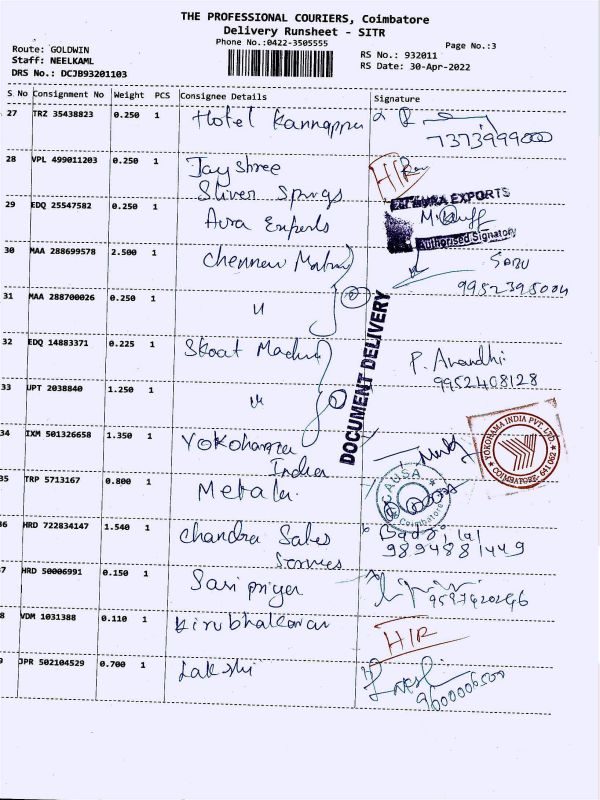 THE PROFESSIONAL COURIERS, Coimbatore
Delivery Runsheet - SITR
Phone No.:0422-3505555
Page No.:3
Route: GOLDWIN
Staff: NEELKAML
DRS No.: DCJB93201103
RS No.: 932011
RS Date: 30-Apr-2022
S No Consignment No Weight PCS Consignee Details Signature
27 TRZ 35438823 0.250 1 Hotel Kannappa
7373999000
28 VPL 499011203 0.250 1 Jay shree
Sliver Springs
HIR
29 EDQ 25547582 0.250 1 Aura Exports
EXPORTS
Authorised Signatory
30 MAA 288699578 2.500 1 Chennai
SABU
9952395004
31 MAA 288700026 0.250 1 "
DOCUMENT DELIVERY
32 EDQ 14883371 0.225 1
P. Anandhi
9952408128
33 UPT 2038840 1.250 1 "
34 IXM 501326658 1.350 1 Yokohama
India
YOKOHAMA INDIA PVT. LTD.
COIMBATORE-641 062
35 TRP 5713167 0.800 1
CAUSA
Coimbatore
36 HRD 722834147 1.540 1 Chandra Sales
Services
9894881449
7 HRD 50006991 0.150 1 Saripriya
8 VDM 1031388 0.110 1
HIR
9 JPR 502104529 0.700 1 Lakshi
9600006500